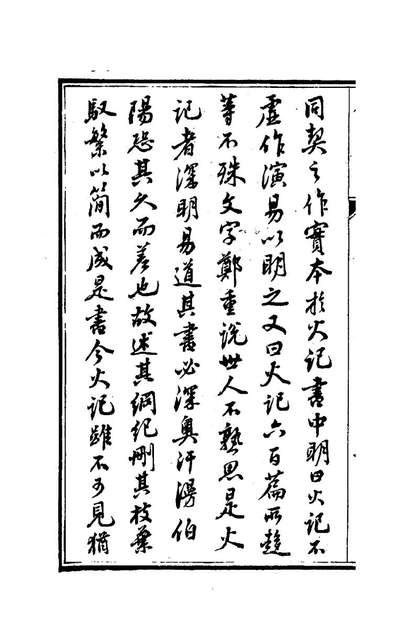 同契之作實本於火記書中明曰火記不
虛作演易以明之又曰火記六百篇所趣
等不殊文字鄭重說世人不熟思是火
記者深明易道其書必深奧汗漫伯
陽恐其久而差也故述其綱紀刪其枝葉
馭繁以簡而成是書今火記雖不可見猶